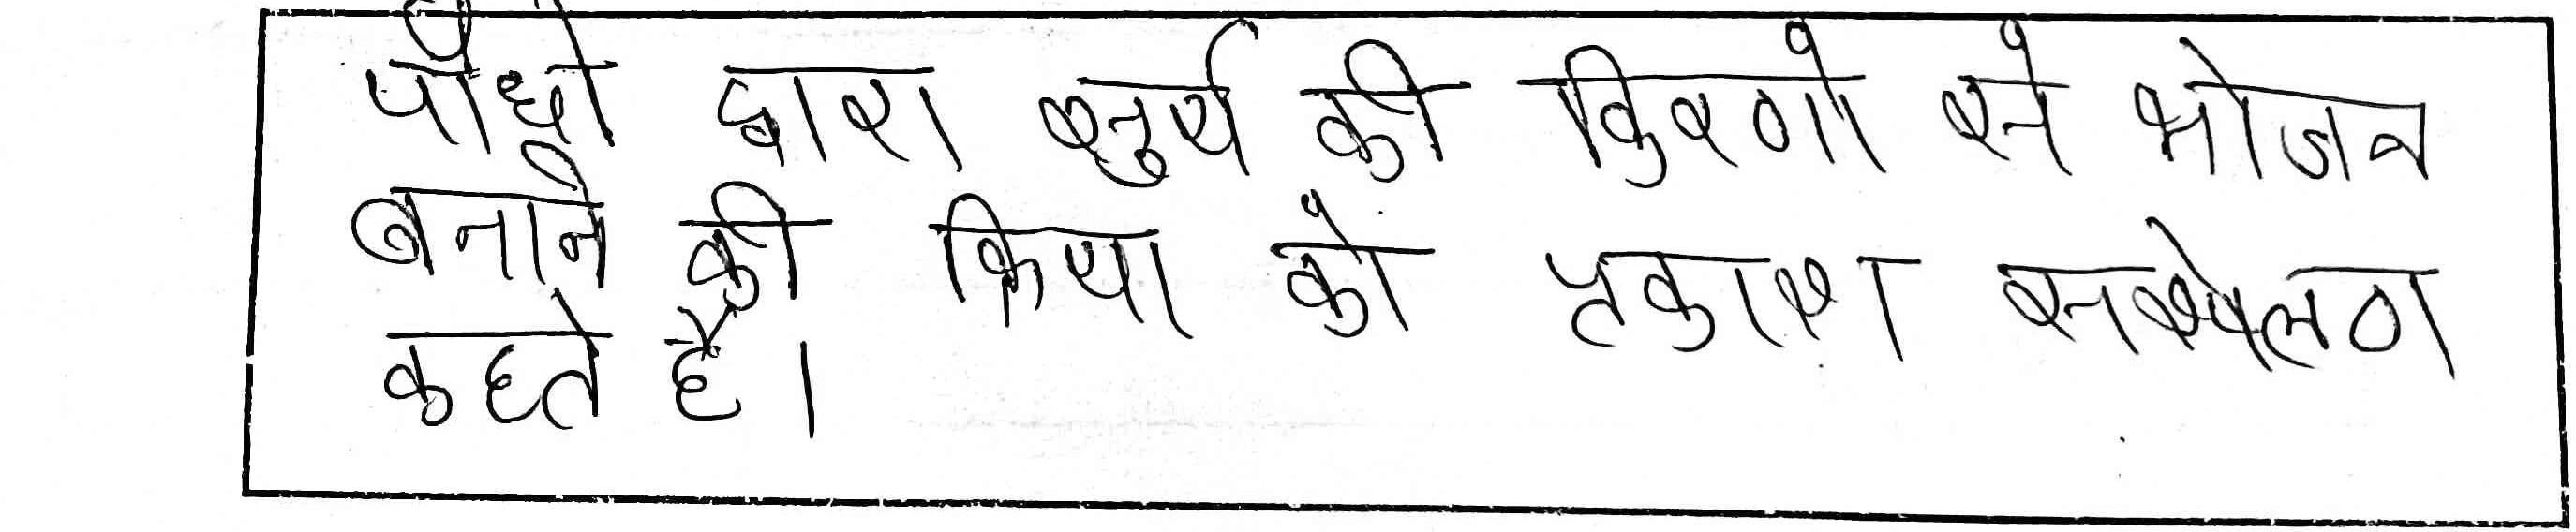 पौधो द्वारा सुर्य की किरणो से भोजन
बनाने की क्रिया को प्रकाश सश्षेलण
कहते है।